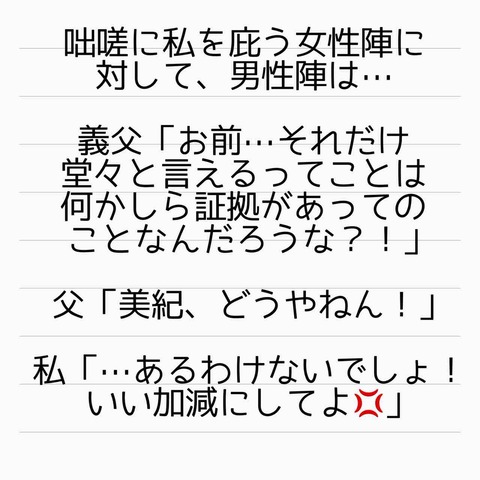 咄嗟に私を庇う女性陣に
対して、男性陣は…
義父「お前…それだけ
堂々と言えるってことは
何かしら証拠があっての
ことなんだろうな？！」
父「美紀、どうやねん！」
私「…あるわけないでしょ！
いい加減にしてよ💢」